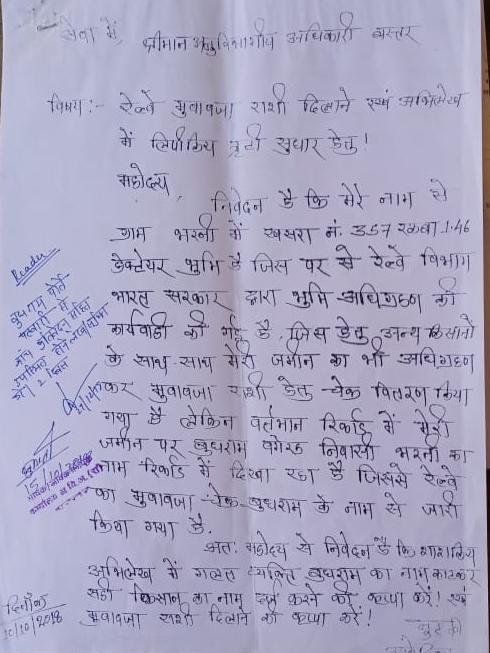 सेवा में,
श्रीमान अनुविभागीय अधिकारी बस्तर
विषय :- रेल्वे मुवावजा राशी दिलाने एवं अभिलेख
में लिपीकिय त्रुटी सुधार हेतु!
महोदय,
निवेदन है कि मेरे नाम से
ग्राम भरनी में खसरा नं. 357 रकबा 1.46
हेक्टेयर भूमि है जिस पर से रेल्वे विभाग
भारत सरकार द्वारा भूमि अधिग्रहण की
कार्यवाही की गई है, जिस हेतु अन्य किसानो
के साथ-साथ मेरी जमीन का भी अधिग्रहण
कर मुवावजा राशी हेतु चेक वितरण किया
गया है लेकिन वर्तमान रिकार्ड में मेरी
जमीन पर बुधराम वगैरह निवासी भरनी का
नाम रिकार्ड में दिखा रहा है जिससे रेल्वे
का मुवावजा चेक बुधराम के नाम से जारी
किया गया है.
अत: महोदय से निवेदन है कि शासकिय
अभिलेख में गलत व्यक्ति बुधराम का नाम काटकर
सही किसान का नाम दर्ज करने की कृपा करें! एवं
मुवावजा राशी दिलाने की कृपा करें!
Reader
15/10/2018
दिनाँक
15/10/2018